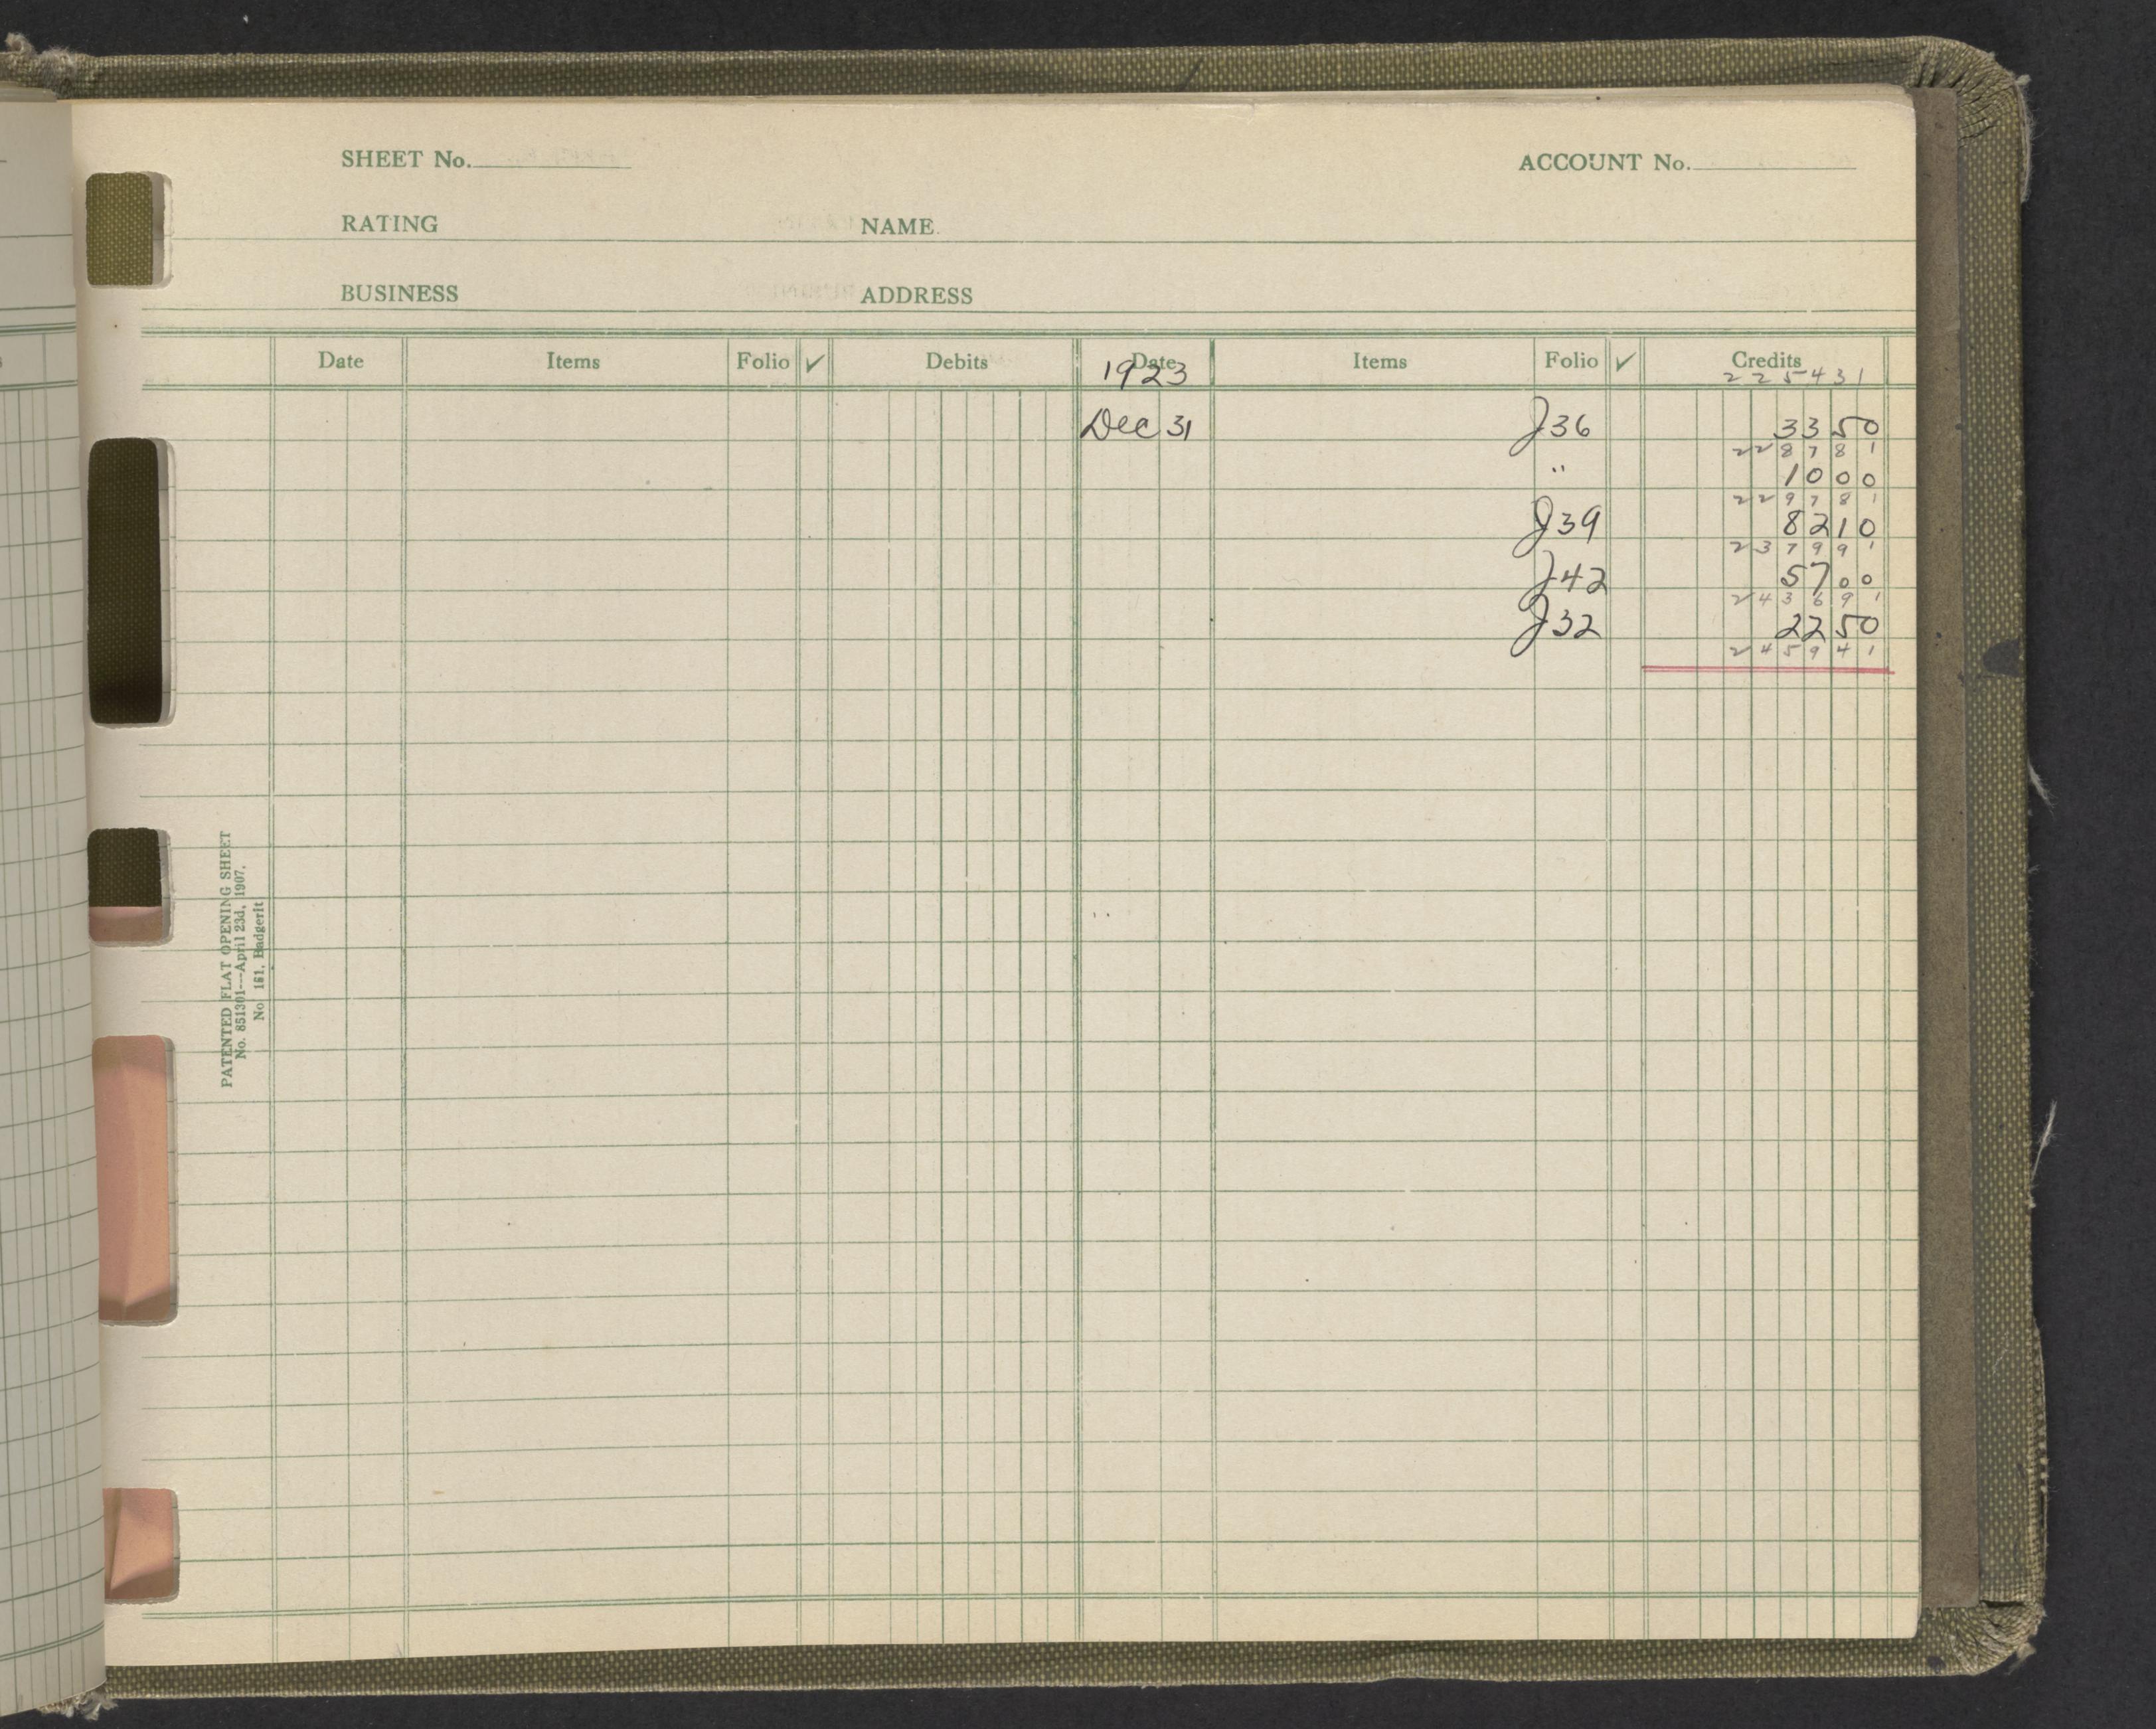 SHEET No. ACCOUNT No.
RATING NAME
BUSINESS ADDRESS
Date Items Folio ✓ Debits Date Items Folio ✓ Credits
1923 225431
Dec 31 J36 33 50
228781
" 10 00
229781
J39 82 10
237991
J42 57 00
243691
J32 22 50
245941
PATENTED FLAT OPENING SHEET
No. 851301---April 23d, 1907.
No 161, Badgerlt